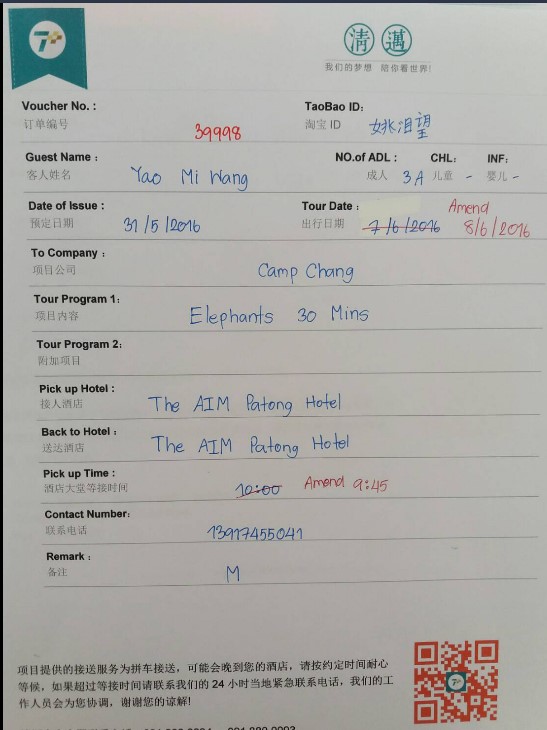 7+
清邁
我们的梦想 陪你看世界!
Voucher No. : TaoBao ID:
订单编号 39998 淘宝 ID 姚泪望
Guest Name : NO.of ADL : CHL: INF:
客人姓名 Yao Mi Wang 成人 3A 儿童 - 婴儿 -
Date of Issue : Tour Date : Amend
预定日期 31/5/2016 出行日期 7/6/2016 8/6/2016
To Company :
项目公司 Camp Chang
Tour Program 1:
项目内容 Elephants 30 Mins
Tour Program 2:
附加项目
Pick up Hotel :
接人酒店 The AIM Patong Hotel
Back to Hotel :
送达酒店 The AIM Patong Hotel
Pick up Time :
酒店大堂等接时间 10:00 Amend 9:45
Contact Number:
联系电话 13917455041
Remark :
备注 M
项目提供的接送服务为拼车接送，可能会晚到您的酒店，请按约定时间耐心
等候，如果超过等接时间请联系我们的 24 小时当地紧急联系电话，我们的工
作人员会为您协调，谢谢您的谅解!